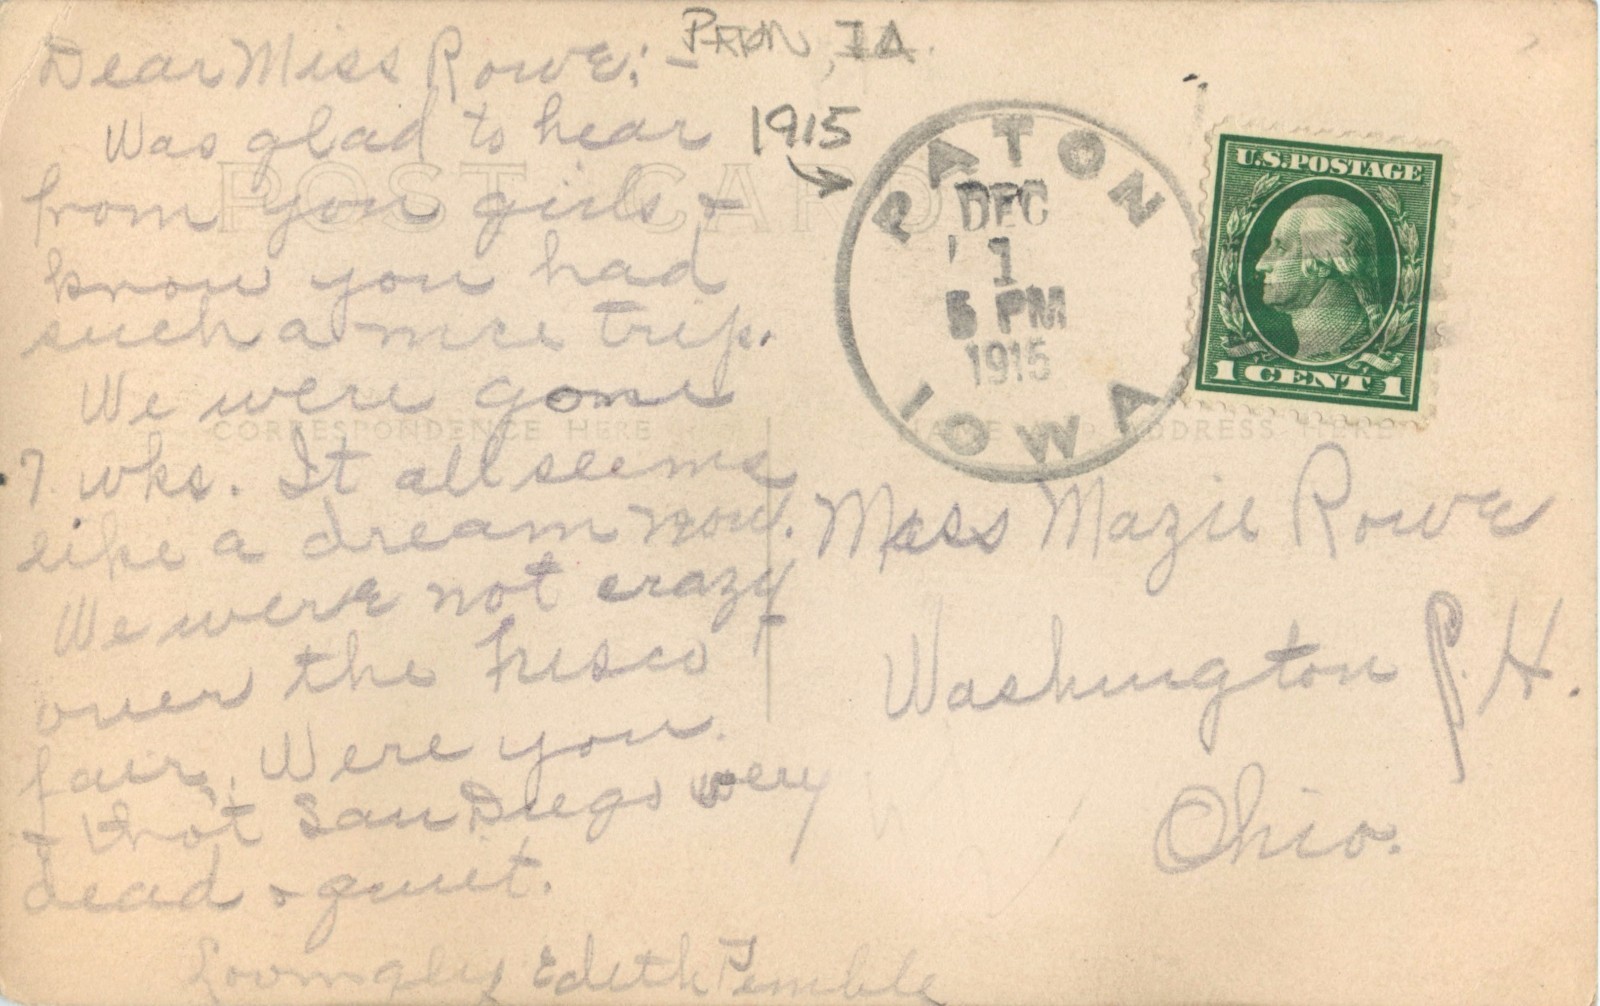 Dear Miss Rowe:-
Was glad to hear
from you girls &
know you had
such a nice trip.
We were gone
7 wks. It all seems
like a dream now.
We were not crazy
over the Frisco
fair. Were you.
& that San Diego very
dead & quiet.
Lovingly Edith Pemble
Paton, IA.
1915
PATON
DEC
1
5 PM
1915
IOWA
U.S. POSTAGE
1 CENT 1
POST CARD
CORRESPONDENCE HERE
NAME AND ADDRESS HERE
Miss Mazie Rowe
Washington P. H.
Ohio.